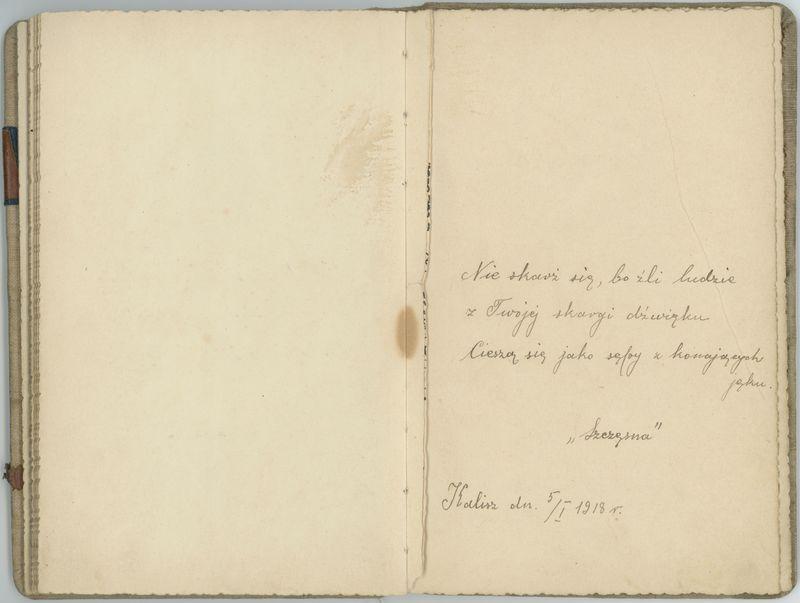 Nie skarż się, bo źli ludzie
z Twójéj skargi dźwięku
Cieszą się jako sępy z konających
jęku.
„Szczęsna"
Kalisz dn. 5/I 1918 r.